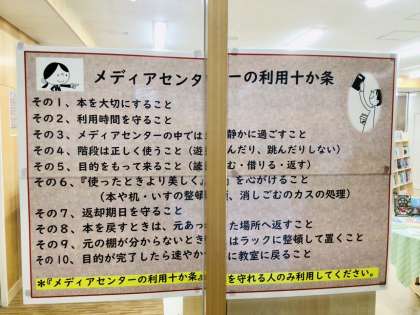 メディアセンターの利用十か条
その1、本を大切にすること
その2、利用時間を守ること
その3、メディアセンターの中では 静かに過ごすこと
その4、階段は正しく使うこと（遊 んだり、跳んだりしない）
その5、目的をもって来ること（読 む・借りる・返す）
その6、『使ったときより美しく』 を心がけること
（本や机・いすの整頓 、消しごむのカスの処理）
その7、返却期日を守ること
その8、本を戻すときは、元あっ 場所へ返すこと
その9、元の棚が分からないとき はラックに整頓して置くこと
その10、目的が完了したら速やか に教室に戻ること
＊『メディアセンターの利用十か条』 を守れる人のみ利用してください。